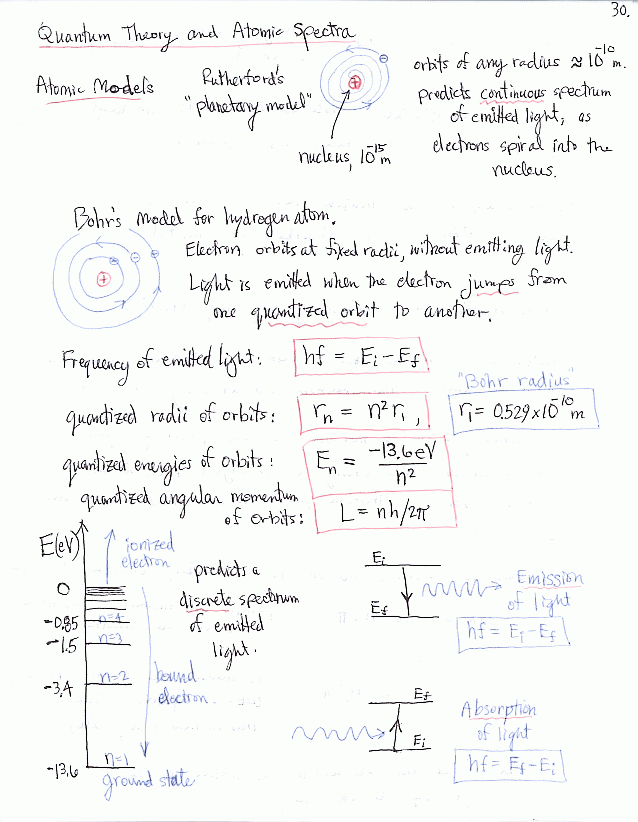 30.
Quantum Theory and Atomic Spectra
Atomic Models
Rutherford's
"planetary model"
nucleus, 10⁻¹⁵ m
orbits of any radius ≈ 10⁻¹⁰ m.
predicts continuous spectrum
of emitted light, as
electrons spiral into the
nucleus.
Bohr's Model for hydrogen atom.
Electron orbits at fixed radii, without emitting light.
Light is emitted when the electron jumps from
one quantized orbit to another.
Frequency of emitted light: hf = Ei − Ef
"Bohr radius"
quantized radii of orbits: rn = n² r1 , r1 = 0.529 × 10⁻¹⁰ m
quantized energies of orbits: En = −13.6 eV / n²
quantized angular momentum
of orbits: L = nh/2π
E(eV)
ionized
electron
0
−0.85 n=4
−1.5 n=3
−3.4 n=2
−13.6 n=1
ground state
bound
electron
predicts a
discrete spectrum
of emitted
light.
Ei
Ef
Emission
of light
hf = Ei − Ef
Ef
Ei
Absorption
of light
hf = Ef − Ei